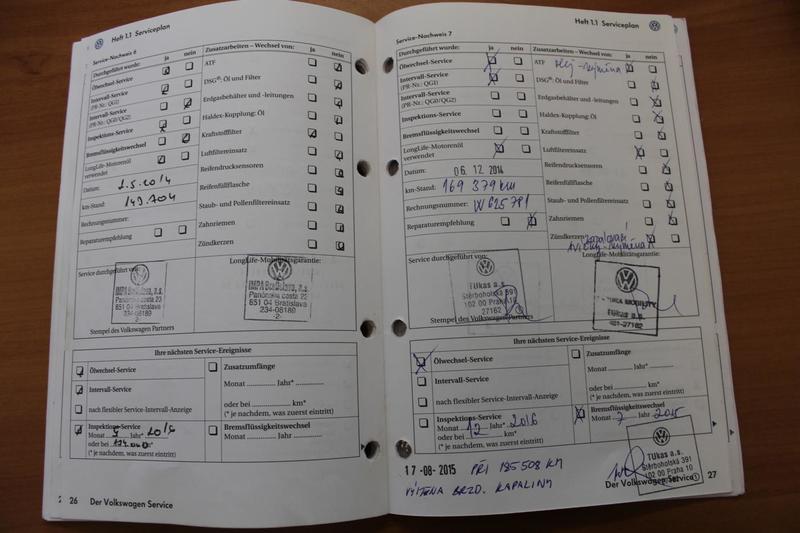 Heft 1.1 Serviceplan
Service-Nachweis 6
Durchgeführt wurde: ja nein Zusatzarbeiten – Wechsel von: ja nein
Ölwechsel-Service
ATF
Intervall-Service
(PR-Nr.: QG1)
DSG®: Öl und Filter
Intervall-Service
(PR-Nr.: QG0/QG2)
Erdgasbehälter und -leitungen
Inspektions-Service
Haldex-Kupplung: Öl
Bremsflüssigkeitswechsel
Kraftstofffilter
LongLife-Motorenöl
verwendet
Luftfiltereinsatz
Datum: 1.5.2014
Reifendrucksensoren
km-Stand: 149.704
Reifenfüllflasche
Rechnungsnummer:
Staub- und Pollenfiltereinsatz
Reparaturempfehlung
Zahnriemen
Zündkerzen
Service durchgeführt von:
LongLife-Mobilitätsgarantie:
IMPA Bratislava, a.s.
Panónska cesta 23
851 04 Bratislava
234-08189
-2-
IMPA Bratislava, a.s.
Panónska cesta 23
851 04 Bratislava
234-08189
-2-
Stempel des Volkswagen Partners
Ihre nächsten Service-Ereignisse
Ölwechsel-Service
Intervall-Service
nach flexibler Service-Intervall-Anzeige
Inspektions-Service
Monat 5 Jahr* 2016
oder bei km*
(* je nachdem, was zuerst eintritt)
Zusatzumfänge
Monat Jahr*
oder bei km*
(* je nachdem, was zuerst eintritt)
Bremsflüssigkeitswechsel
Monat Jahr
26 Der Volkswagen Service
Heft 1.1 Serviceplan
Service-Nachweis 7
Durchgeführt wurde: ja nein Zusatzarbeiten – Wechsel von: ja nein
Ölwechsel-Service
ATF olej - výměna
Intervall-Service
(PR-Nr.: QG1)
DSG®: Öl und Filter
Intervall-Service
(PR-Nr.: QG0/QG2)
Erdgasbehälter und -leitungen
Inspektions-Service
Haldex-Kupplung: Öl
Bremsflüssigkeitswechsel
Kraftstofffilter
LongLife-Motorenöl
verwendet
Luftfiltereinsatz
Datum: 06. 12 2014
Reifendrucksensoren
km-Stand: 169 379 km
Reifenfüllflasche
Rechnungsnummer: W625781
Staub- und Pollenfiltereinsatz
Reparaturempfehlung
Zahnriemen
Zündkerzen zapalovací
svíčky - výměna
Service durchgeführt von:
LongLife-Mobilitätsgarantie:
TUkas a.s.
Štěrboholská 391
102 00 Praha 10
27162
MOBILITY
TUkas a.s.
401-27162
Stempel des Volkswagen Partners
Ihre nächsten Service-Ereignisse
Ölwechsel-Service
Intervall-Service
nach flexibler Service-Intervall-Anzeige
Inspektions-Service
Monat 12 Jahr* 2016
oder bei km*
(* je nachdem, was zuerst eintritt)
Zusatzumfänge
Monat Jahr*
oder bei km*
(* je nachdem, was zuerst eintritt)
Bremsflüssigkeitswechsel
Monat 7 Jahr 2015
17 -08- 2015 PŘI 185 508 KM
VÝMĚNA BRZD. KAPALINY
TUkas a.s.
Štěrboholská 391
102 00 Praha 10
Der Volkswagen Service 27